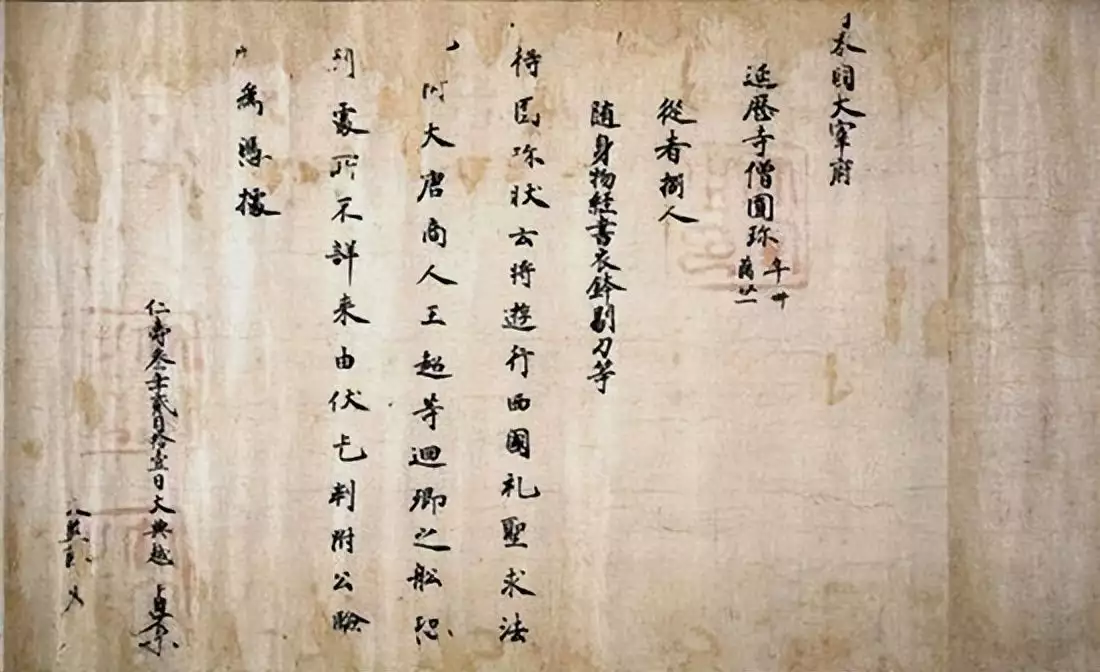 日本國大宰府
延歷寺僧圓珍 年卌 﨟廿一
從者捌人
随身物經書衣鉢剔刀等
得圓珍狀云將遊行西國礼聖求法
附大唐商人王超等迴鄉之舩恐
到處所不詳来由伏乞判附公驗
以為憑據
仁壽叁年貳月拾壹日大典越貞原